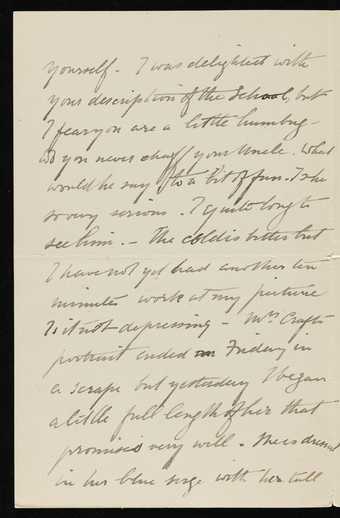 yourself - I was delighted with
your description of the School, but
I fear you are a little humbug -
Do you never chaff your Uncle. What
would he say to a bit of fun. Is he
so very serious. I quite long to
see him. - The cold is bitter but
I have not yet had another ten
minutes work at my picture
Is it not depressing - Mrs Crafts
portrait ended on Friday in
a scrape but yesterday I began
a little full length of her that
promises very well - She is dressed
in her blue serge with her tall